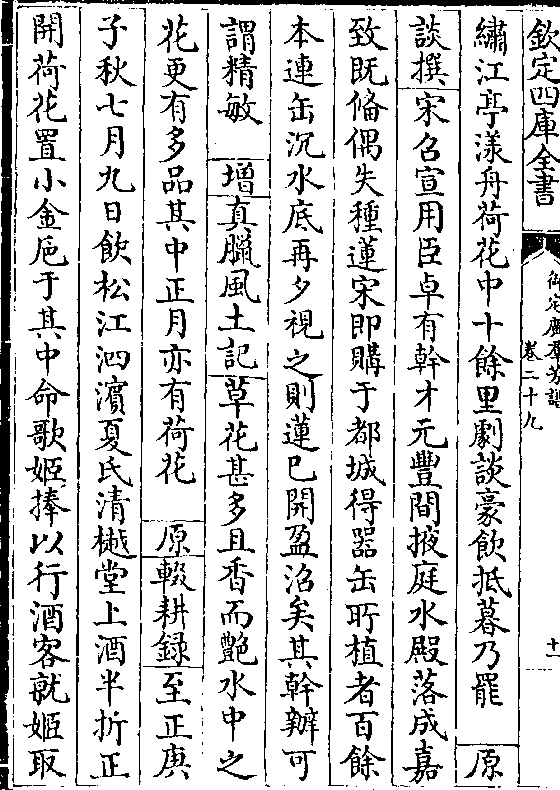 欽定四庫全書
御定廣羣芳譜
卷二十九
十一
繡江亭漾舟荷花中十餘里劇談豪飲抵暮乃罷 原
談撰宋召宣用臣卓有幹才元豐間掖庭水殿落成嘉
致既偹偶失種蓮宋即購于都城得器缶所植者百餘
本連缶沉水底再夕視之則蓮已開盈沼矣其幹辦可
謂精敏 增真臘風土記草花甚多且香而艷水中之
花更有多品其中正月亦有荷花 原輟耕録至正庚
子秋七月九日飲松江泗濱夏氏清樾堂上酒半折正
開荷花置小金巵于其中命歌姬捧以行酒客就姬取